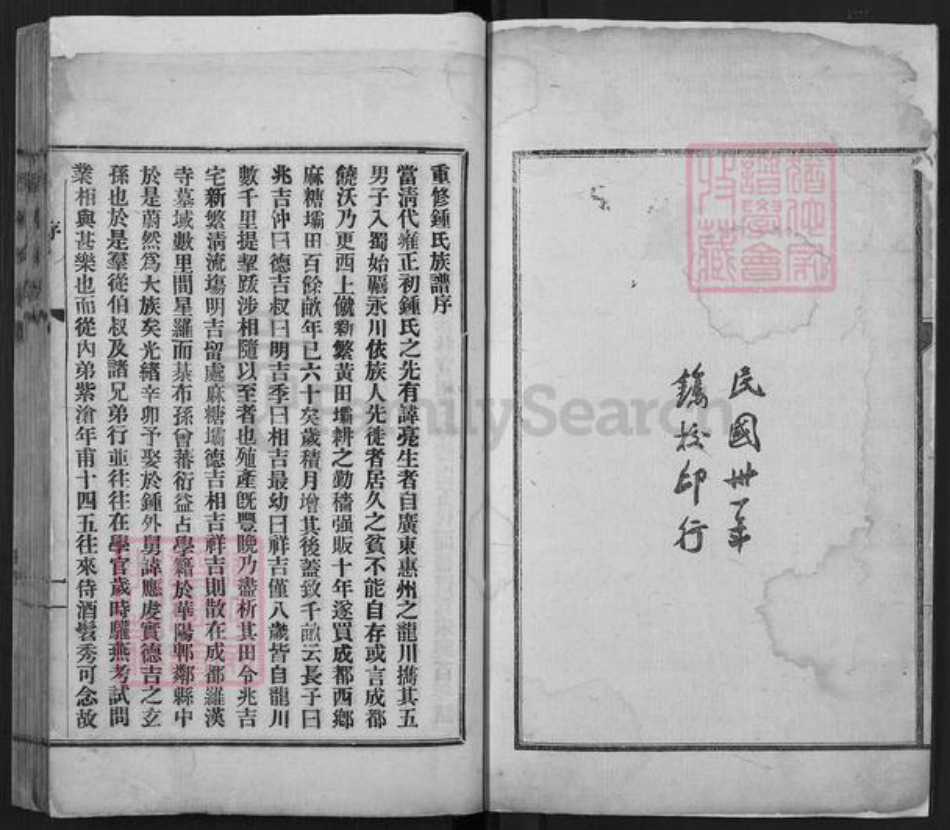 民國卅一年
鐫校印行
重修鍾氏族譜序
當清代雍正初鍾氏之先有諱亮生者自廣東惠州之龍川攜其五
男子入蜀始羈永川依族人先徙者居久之貧不能自存或言成都
饒沃乃更西上僦新繁黃田壩耕之勤穡强販十年遂買成都西鄉
麻糖壩田百餘畝年已六十矣歲積月增其後蓋致千畝云長子曰
兆吉仲曰德吉叔曰明吉季曰相吉最幼曰祥吉僅八歲皆自龍川
數千里提挈跋涉相隨以至者也殖產旣豐晚乃盡析其田令兆吉
宅新繁清流塲明吉留處麻糖壩德吉相吉祥吉則散在成都羅漢
寺墓域數里間星羅而棊布孫曾蕃衍益占學籍於華陽郫鄰縣中
於是蔚然爲大族矣光緒辛卯予娶於鍾外舅諱應虔實德吉之玄
孫也於是羣從伯叔及諸兄弟行並往往在學官歲時驩燕考試問
業相與甚樂也而從內弟紫滄年甫十四五往來侍酒髫秀可念故
序
一
FamilySearch
譜學會
收藏